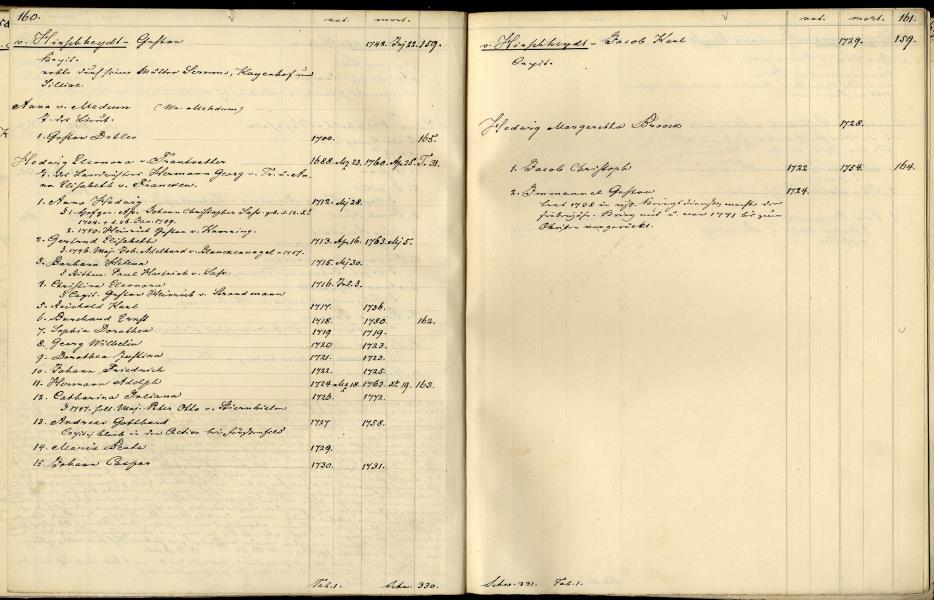 160.
nat. mort.
v. Hirschheydt - Gustav 1748. 22. 159.
Capit.
erbte durch seine Mutter Sermus, Kayenhof und
Anna v. Medum (Wr. Mehdum)
1. Gustav Detlev 1700. 165.
Hedwig Eleonora v. Trautvetter 1688. 23. 1760. Ap. 25. T. 31.
T. des Landrichters Hermann Georg v. Tr. u. An-
na Elisabeth v. Francken.
1. Anna Hedwig 1712. Mj 28.
Johann Christopher
1704. + d. 26. Jan. 1749.
2. 1750. Heinrich Gustav v.
2. Gertrud Elisabeth 1713. Ap. 16. 1763. Mj 5.
1746. Maj. Joh. Adelhard v. Blanckennagel + 1757.
3. Barbara Helena 1715. Mj 30.
Paul Hinrich v.
4. Christina Eleonora 1716. Jul. 3.
Capit. Gustav Heinrich v. Strandmann
5. Reinhold Karl 1717. 1736.
6. Burchard Ernst 1718. 1780. 162.
7. Sophia Dorothea 1719 1719.
8. Georg Wilhelm 1720 1723.
9. Dorothea Justina 1721. 1723.
10. Johann Friedrich 1722. 1725.
11. Hermann Adolph 1724 18. 1763. 19. 163.
12. Catharina Juliana 1726. 1772.
1747. Maj. Peter Otto v. Stiernhielm
13. Andreas Gotthard 1727 1758.
blieb in der Action bei
14. Maria Beata 1729.
15. Johann Caspar 1730. 1731.
Tab. 1. Schw. 330.
nat. mort. 161.
v. Hirschheydt - Jacob Karl 1729. 159.
Capit.
Hedwig Margaretha Broock 1728.
1. Jacob Christoph 1722 1754. 164.
2. Immanuel Gustav 1724.
trat 1738 in Kriegsdienste, machte den
Krieg mit u. war 1741 bis zum
Obristen vorgerückt.
Schw. 331. Tab. 1.